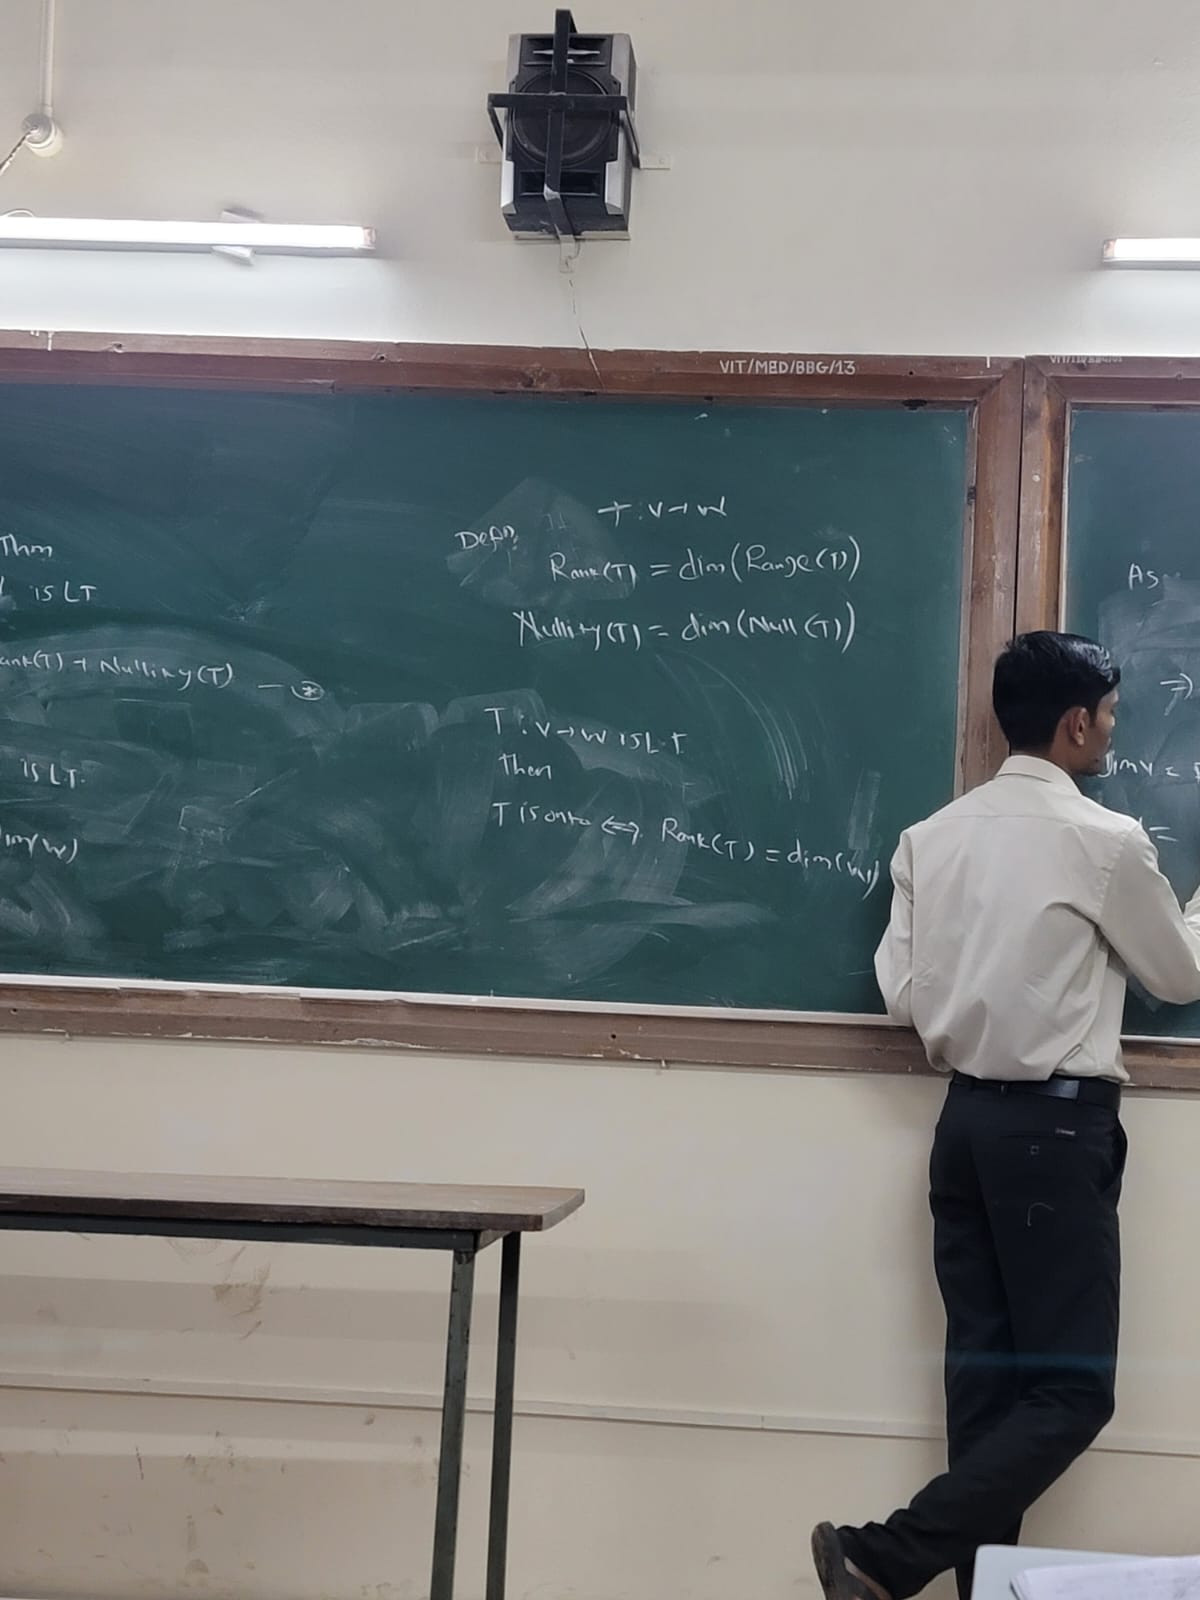 VIT/MED/BBG/13
Thm
is LT
ank(T) + Nullity(T) — ⊛
is L.T.
dim(W)
Defn: T : V → W
Rank(T) = dim(Range(T))
Nullity(T) = dim(Null(T))
T : V → W is L.T.
then
T is onto ⇔ Rank(T) = dim(W)
As
⇒)
dim V =
=